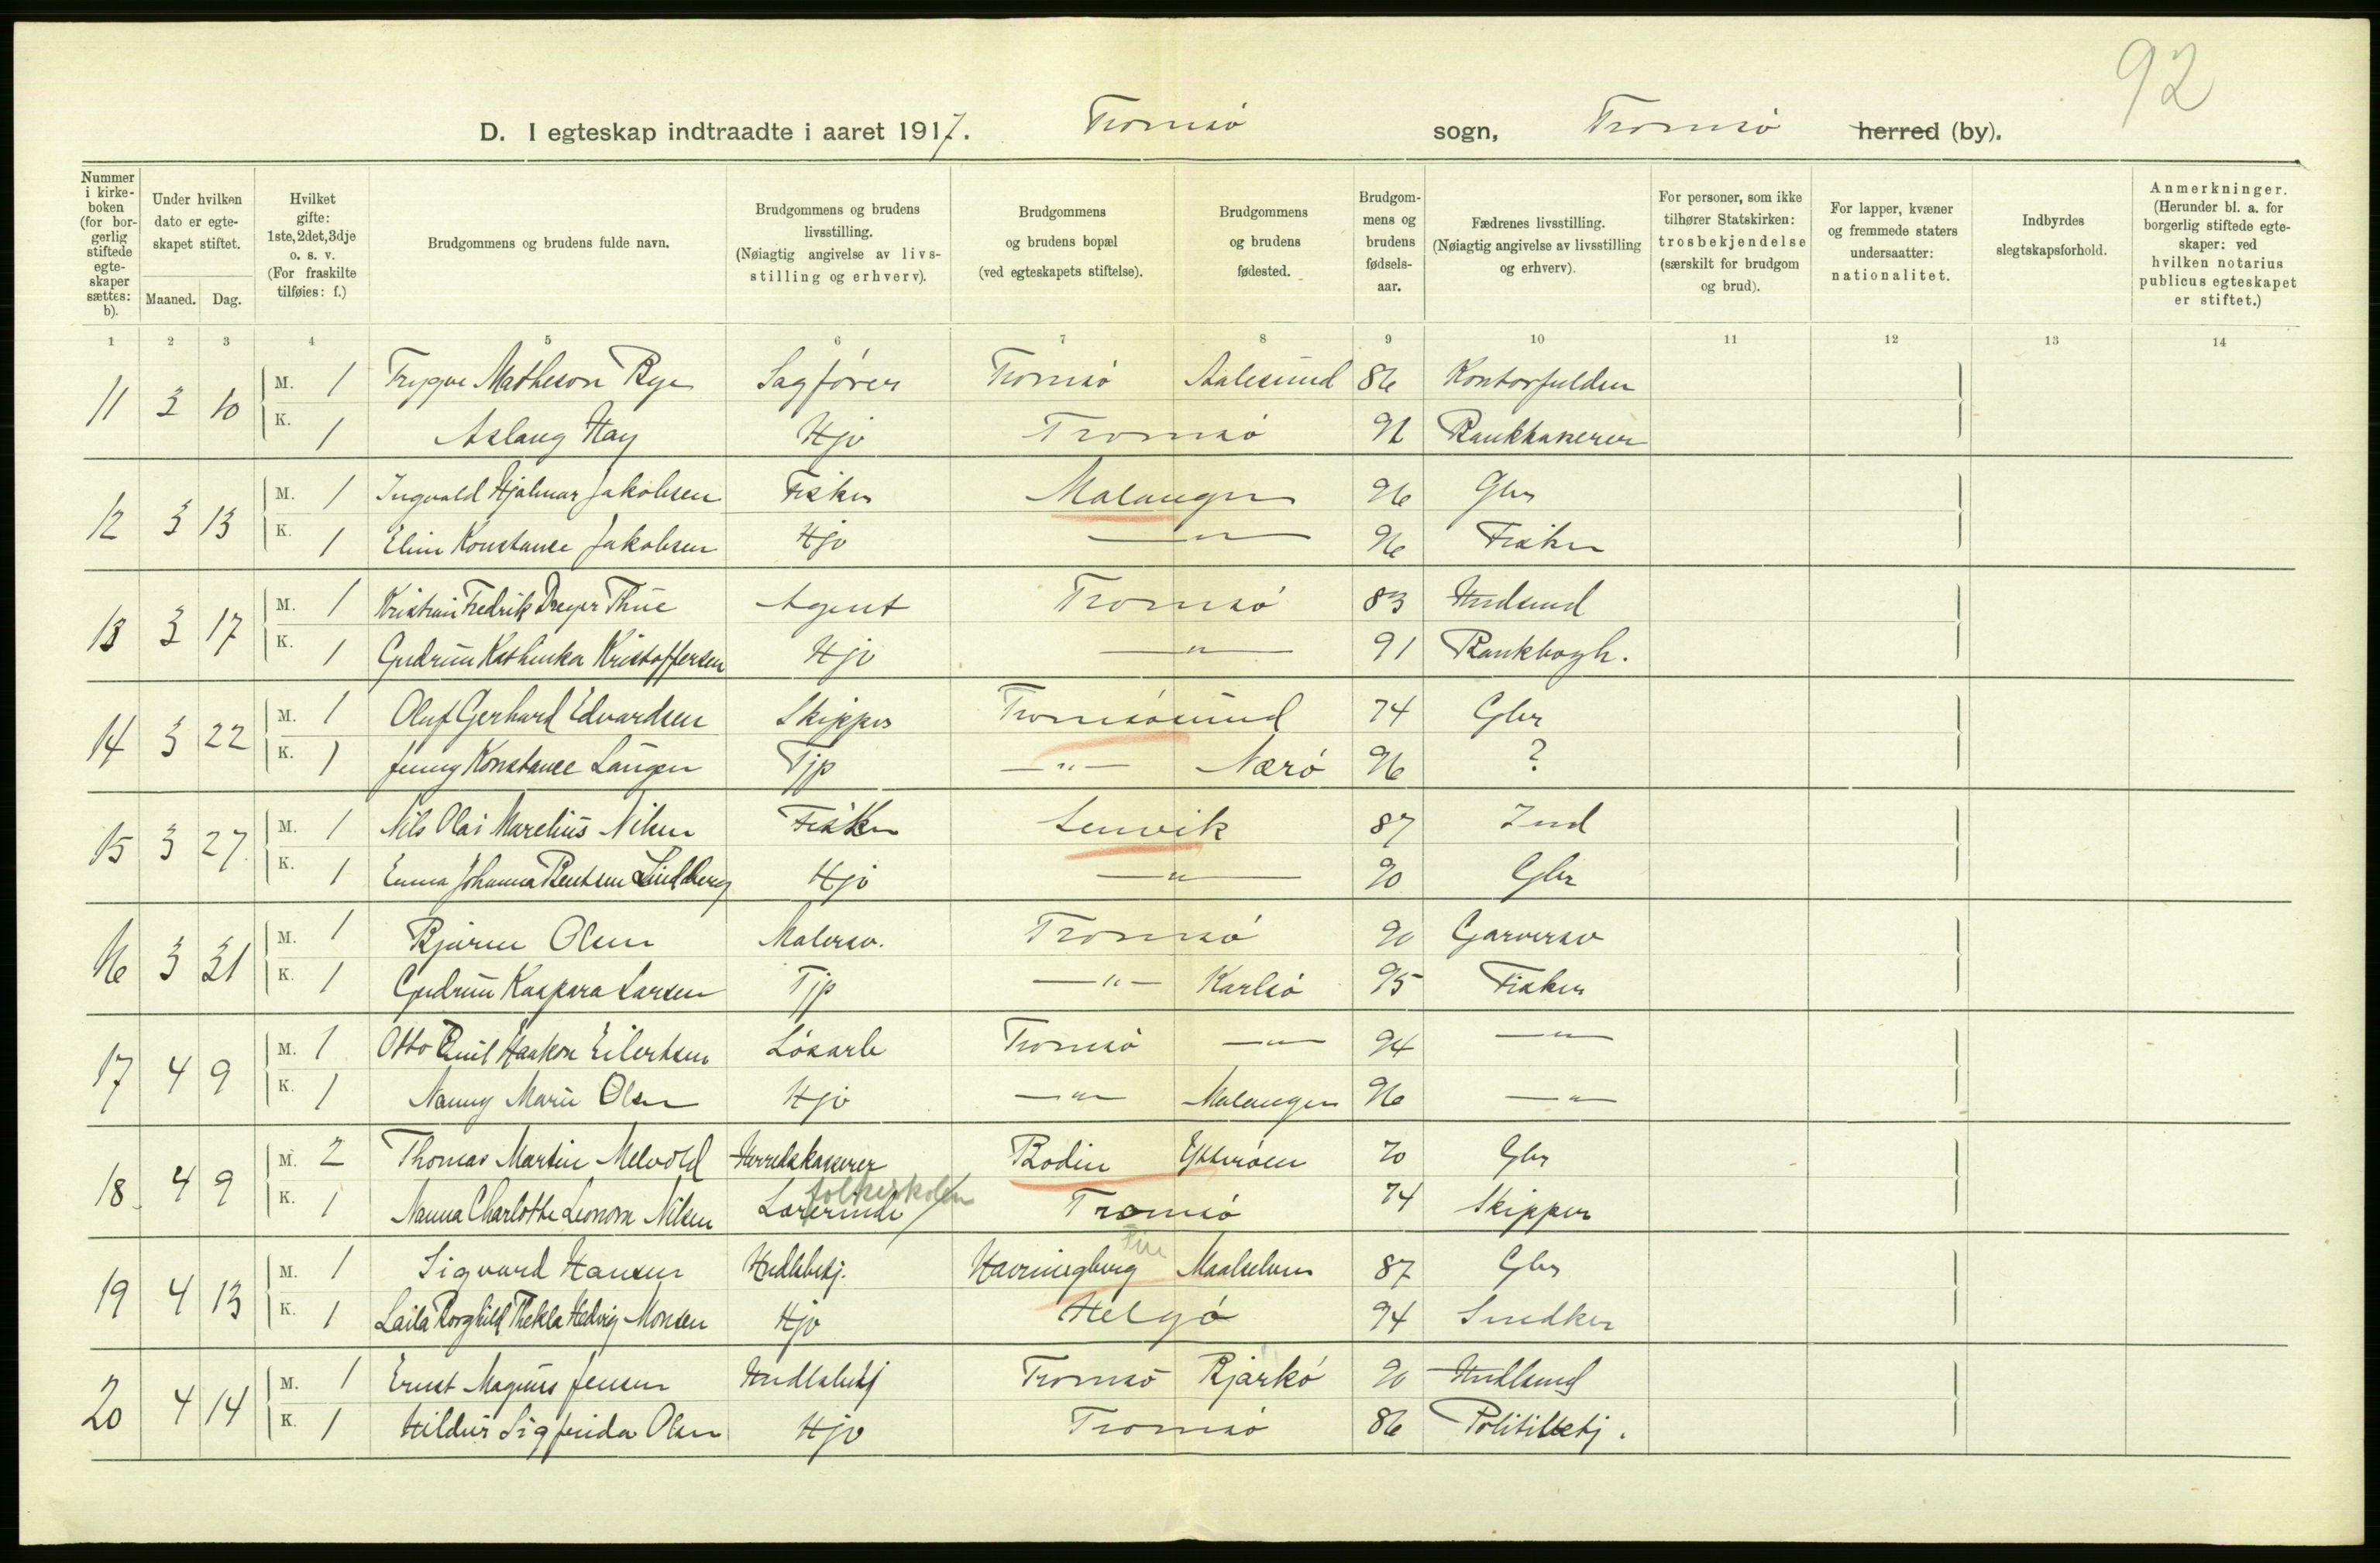 92
D. I egteskap indtraadte i aaret 1917. Tromsø sogn, Tromsø herred (by).
Nummer i kirke-boken (for bor-gerlig stiftede egte-skaper sættes: b).
Under hvilken dato er egte-skapet stiftet.
Maaned. Dag.
Hvilket gifte: 1ste, 2det, 3dje o. s. v. (For fraskilte tilføies: f.)
Brudgommens og brudens fulde navn.
Brudgommens og brudens livsstilling. (Nøiagtig angivelse av livs-stilling og erhverv).
Brudgommens og brudens bopæl (ved egteskapets stiftelse).
Brudgommens og brudens fødested.
Brudgom-mens og brudens fødsels-aar.
Fædrenes livsstilling. (Nøiagtig angivelse av livsstilling og erhverv).
For personer, som ikke tilhører Statskirken: trosbekjendelse (særskilt for brudgom og brud).
For lapper, kvæner og fremmede staters undersaatter: nationalitet.
Indbyrdes slegtskapsforhold.
Anmerkninger. (Herunder bl. a. for borgerlig stiftede egte-skaper: ved hvilken notarius publicus egteskapet er stiftet.)
1 2 3 4 5 6 7 8 9 10 11 12 13 14
11 3 10 M. 1 Trygve Matheson Bye Sagfører Tromsø Aalesund 86 Kontorfuldm
K. 1 Aslaug Hay Hjv Tromsø 91 Bankkaserer
12 3 13 M. 1 Ingvald Hjalmar Jakobsen Fisker Malangen 96 Gbr
K. 1 Elim Konstanse Jakobsen Hjv —"— 96 Fisker
13 3 17 M. 1 Kristian Fredrik Dreyer Thue Agent Tromsø 83 Hndsmd
K. 1 Gudrun Kathinka Kristoffersen Hjv —"— 91 Bankbogh.
14 3 22 M. 1 Oluf Gerhard Edvardsen Skipper Tromsøsund 74 Gbr
K. 1 Jenny Konstanse Langen Tjp —"— Nærø 96 ?
15 3 27 M. 1 Nils Olai Marelius Nilsen Fisker Lenvik 87 Ind
K. 1 Emma Johanna Bentsen Lindberg Hjv —"— 90 Gbr
16 3 31 M. 1 Bjarne Olsen Malersv. Tromsø 90 Garversv
K. 1 Gudrun Kaspara Larsen Tjp —"— Karlsø 95 Fisker
17 4 9 M. 1 Otto Emil Haakon Eilertsen Løsarb Tromsø —"— 94 —"—
K. 1 Nanny Marie Olsen Hjv —"— Malangen 96 —"—
18 4 9 M. 2 Thomas Martin Melvold Herredskasserer Bodin Ytterøen 70 Gbr
folkeskolen
K. 1 Nanna Charlotte Leonora Nilsen Lærerinde Tromsø 74 Skipper
19 4 13 M. 1 Sigvard Hansen Hndlsbetj. Havningberg Fin Maalselven 87 Gbr
K. 1 Laila Borghild Thekla Hedvig Monsen Hjv Helgø 94 Snedker
20 4 14 M. 1 Ernst Magnus Jensen Hndlsbetj Tromsø Bjarkø 90 Hndlsmd
K. 1 Hildur Sigfrida Olsen Hjv Tromsø 86 Politibetj.